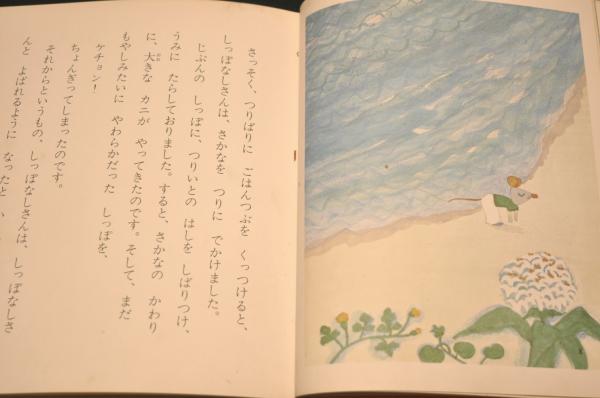 さっそく、つりばりに ごはんつぶを くっつけると、
しっぽなしさんは、さかなを つりに でかけました。
じぶんの しっぽに、つりいとの はしを しばりつけ、
うみに たらしておりました。すると、さかなの かわり
に、大きな カニが やってきたのです。そして、まだ
もやしみたいに やわらかだった しっぽを、
ケチョン！
ちょんぎってしまったのです。
それからというもの、しっぽなしさんは、しっぽなしさ
んと よばれるように なったと